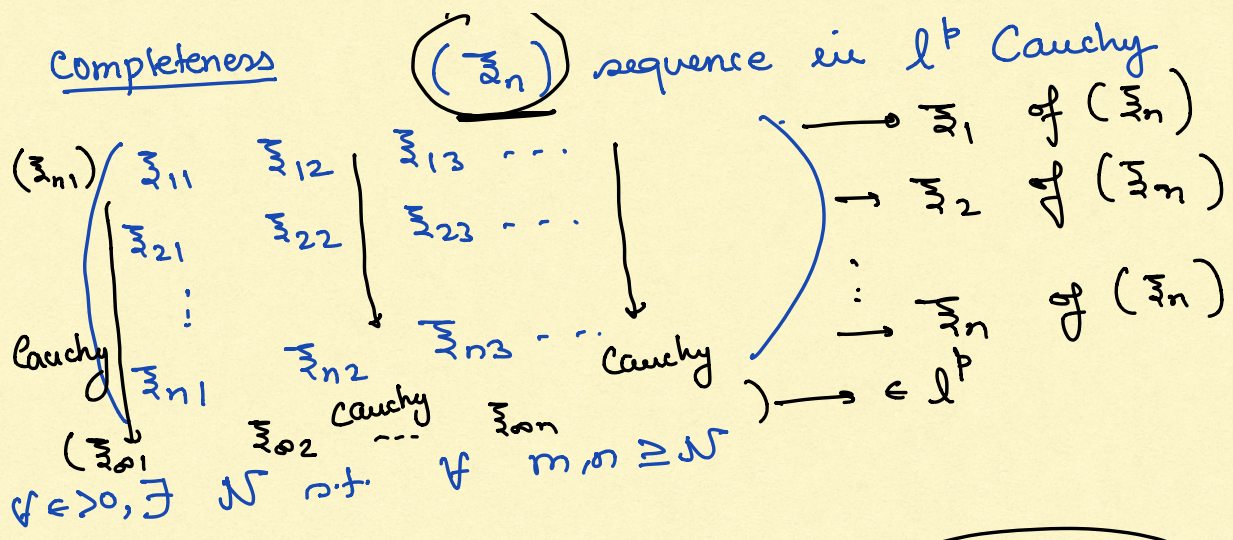 Completeness (ξ_n) sequence in l^p Cauchy
(ξ_{n1}) ( ξ_{11} ξ_{12} ξ_{13} ... ) → ξ_1 of (ξ_n)
ξ_{21} ξ_{22} ξ_{23} ... → ξ_2 of (ξ_n)
⋮ ⋮
ξ_{n1} ξ_{n2} ξ_{n3} ... → ξ_n of (ξ_n)
Cauchy Cauchy Cauchy
(ξ_{∞1} ξ_{∞2} ... ξ_{∞n} ) → ∈ l^p
∀ ϵ >0, ∃ N s.t. ∀ m,n ≥ N